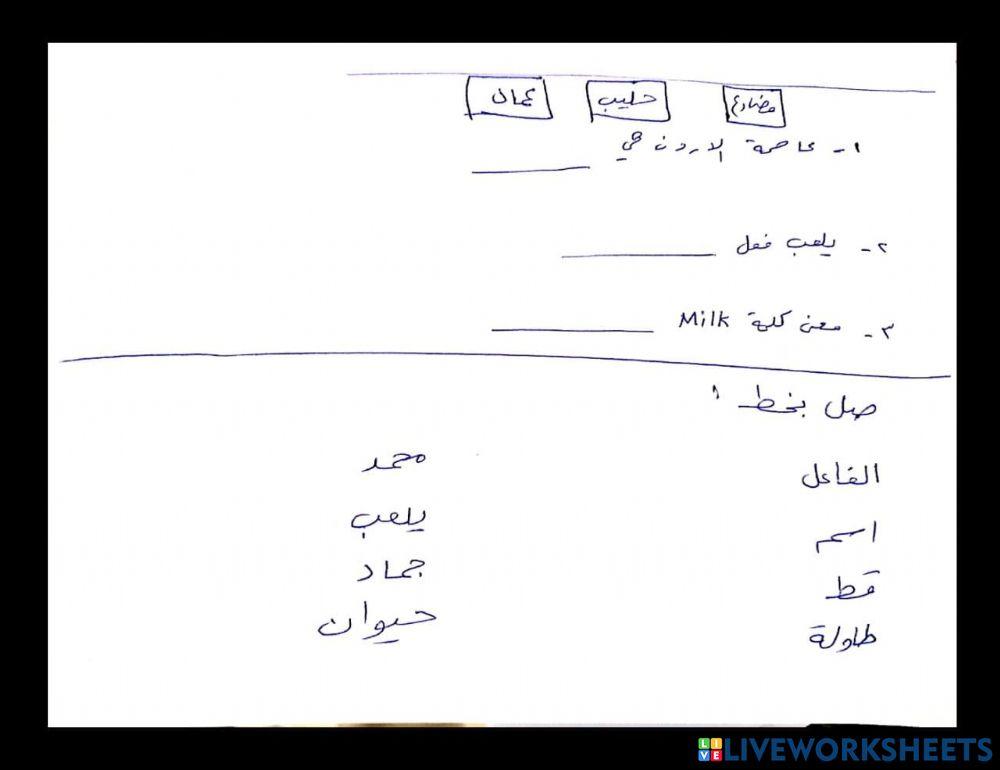 مضارع حليب عمان
١- عاصمة الاردن هي
٢- يلعب فعل
٣- معنى كلمة Milk
صل بخط :
الفاعل محمد
اسم يلعب
قط جماد
طاولة حيوان
LIVEWORKSHEETS